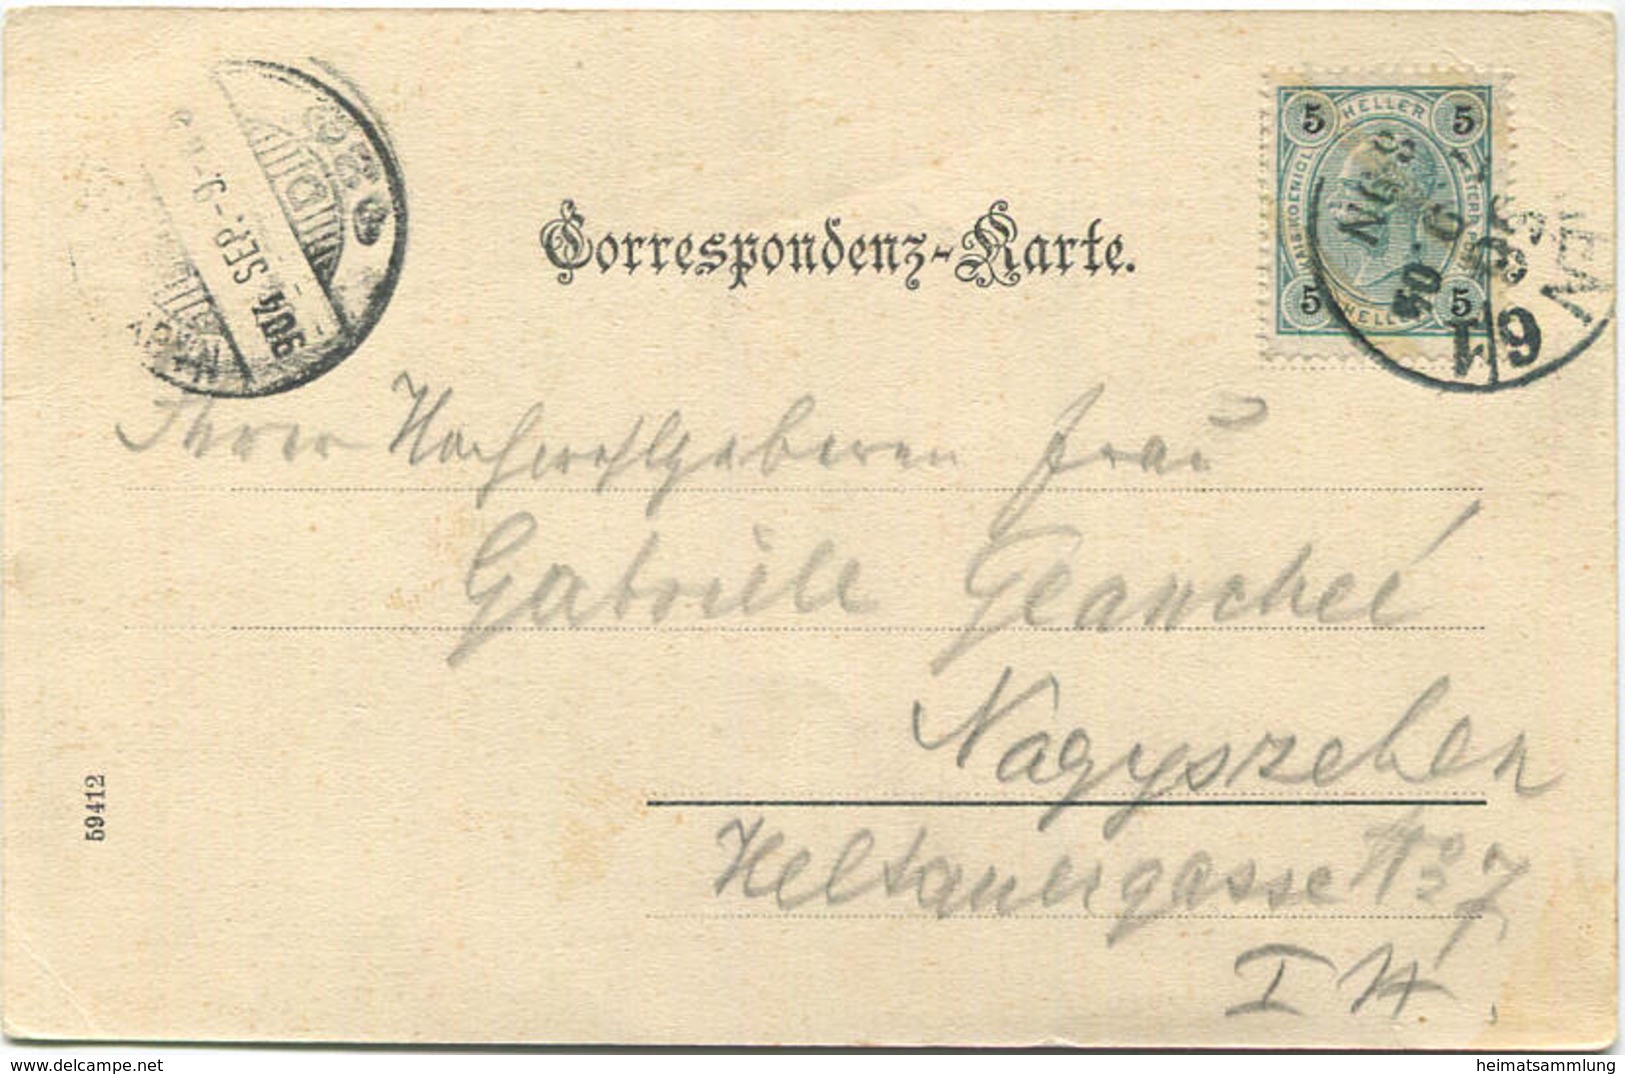 Correspondenz-Karte.
5 HELLER 5
5 HELLER 5
6/1
904 SEP. -9
NAGY
59412
Ihrer Hochwohlgeboren Frau
Gabriele
Nagyszeben
Heltauergasse No 7
I
delcampe.net
heimatsammlung